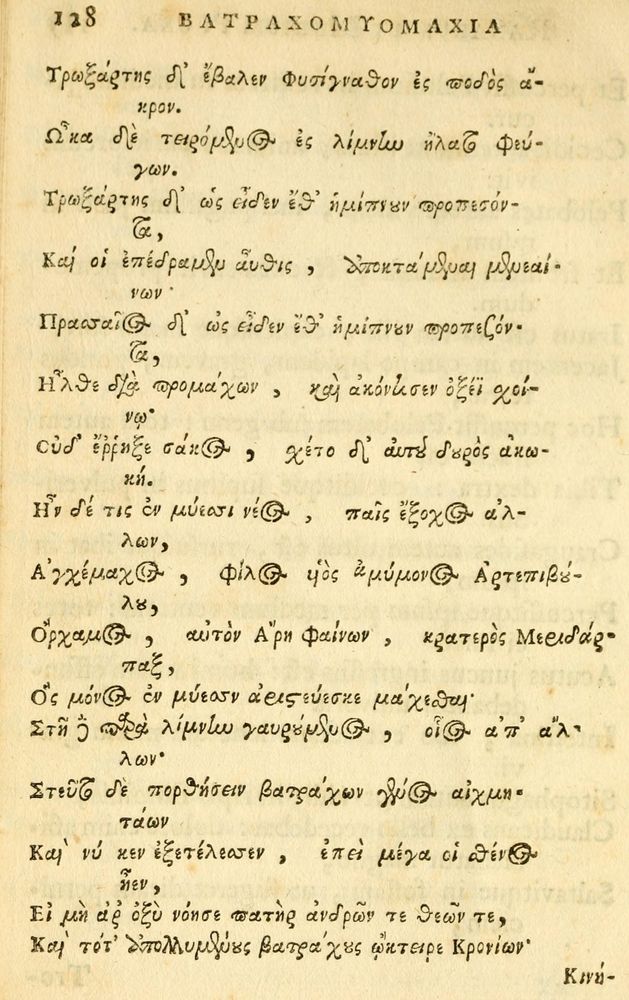 128 ΒΑΤΡΑΧΟΜΥΟΜΑΧΙΑ
Τρωξάρτης δ' ἔβαλεν Φυσίγναθον ἐς ποδὸς ἄ-
κρον.
Ὦκα δὲ τειρόμενος ἐς λίμνην ἥλατο φεύ-
γων.
Τρωξάρτης δ' ὡς εἶδεν ἔθ' ἡμίπνουν προπεσόν-
τα,
Καί οἱ ἐπέδραμεν αὖθις, ἀποκτάμεναι μενεαί-
νων·
Πρασσαῖος δ' ὡς εἶδεν ἔθ' ἡμίπνουν προπεζόν-
τα,
Ἦλθε διὰ προμάχων, καὶ ἀκόντισεν ὀξέϊ χοί-
νῳ·
Οὐδ' ἔῤῥηξε σάκος, χέτο δ' αὐτοῦ δουρὸς ἀκω-
κή.
Ἦν δέ τις ἐν μύεσσι νέος, παῖς ἔξοχος ἄλ-
λων,
Ἀγχέμαχος, φίλος υἱὸς ἀμύμονος Ἀρτεπιβού-
λου,
Ὄρχαμος, αὐτὸν Ἄρη φαίνων, κρατερὸς Μεριδάρ-
παξ,
Ὃς μόνος ἐν μύεσσιν ἀριστεύεσκε μάχεσθαι·
Στῆ δὲ παρὰ λίμνην γαυρούμενος, οἶος ἀπ' ἄλ-
λων·
Στεῦτο δὲ πορθήσειν βατράχων γένος αἰχμη-
τάων
Καί νύ κεν ἐξετέλεσσεν, ἐπεὶ μέγα οἱ σθένος
ἦεν,
Εἰ μὴ ἄρ' ὀξὺ νόησε πατὴρ ἀνδρῶν τε θεῶν τε,
Καὶ τότ' ἀπολλυμένους βατράχους ᾤκτειρε Κρονίων·
Κινή-